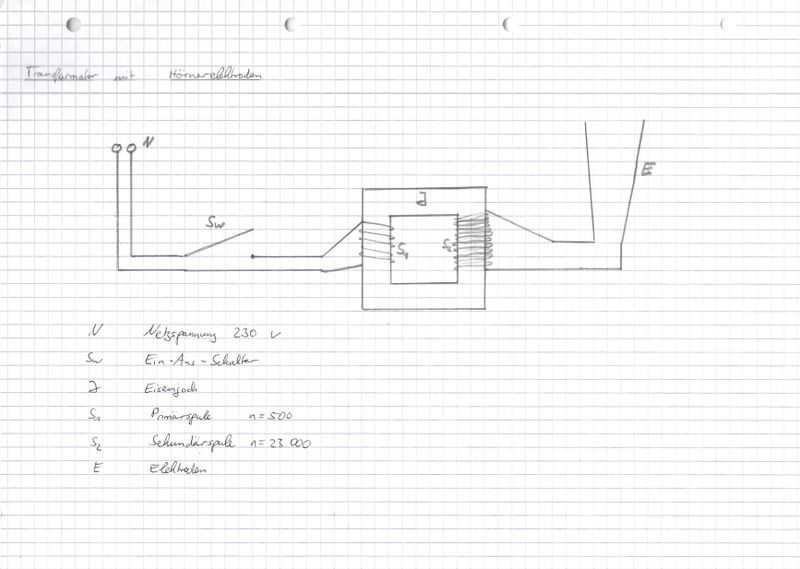 Transformator mit Hörnerelektroden
N
Sw
J
S1
S2
E
N Netzspannung 230 V
Sw Ein-Aus-Schalter
J Eisenjoch
S1 Primärspule n=500
S2 Sekundärspule n=23.000
E Elektroden